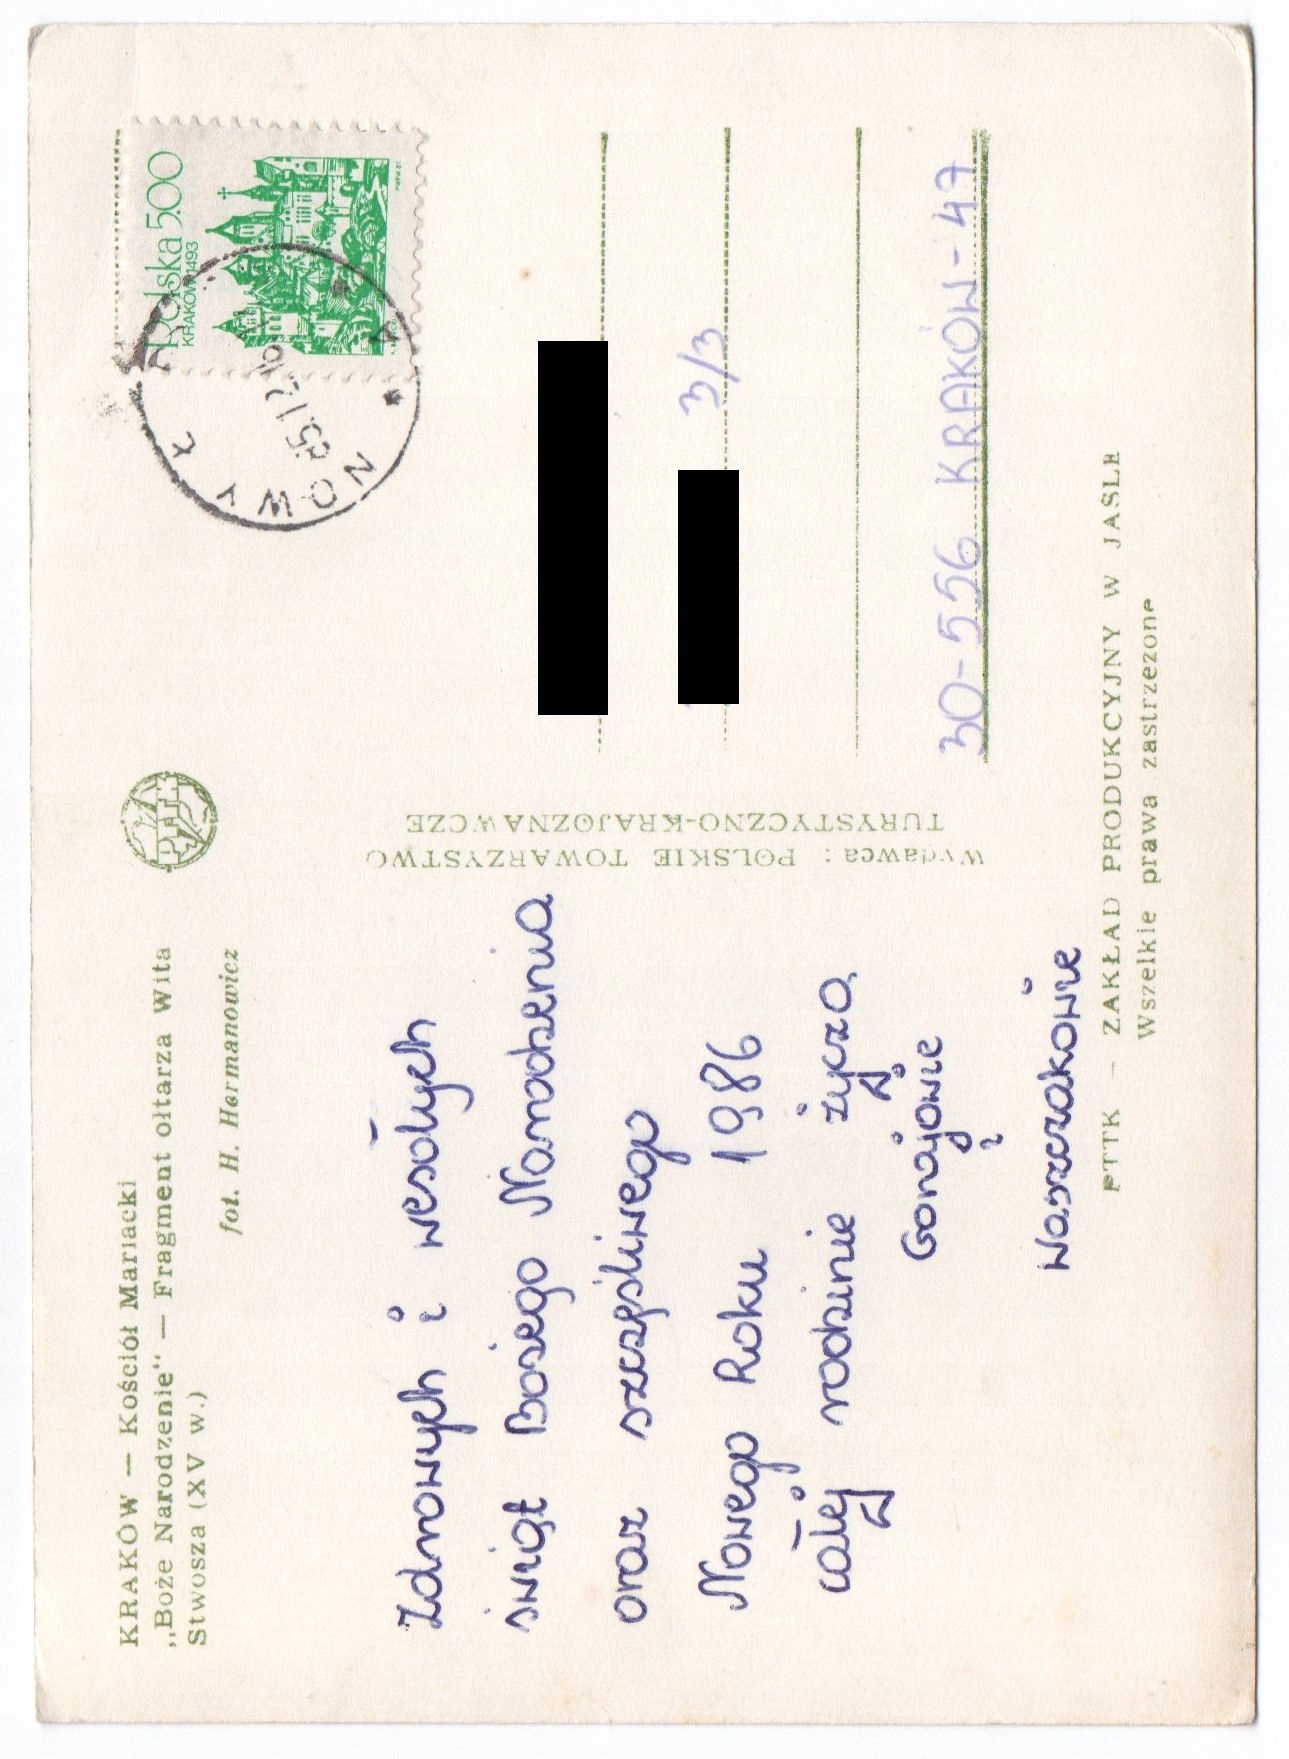 KRAKÓW — Kościół Mariacki
„Boże Narodzenie" — Fragment ołtarza Wita
Stwosza (XV w.)
fot. H. Hermanowicz
PTTK
Polska 5.00
KRAKÓW 1493
NOWY
Zdrowych i wesołych
świąt Bożego Narodzenia
oraz szczęśliwego
Nowego Roku 1986
całej rodzinie życzą
Gonajowie
i
Waszczakowie
Wydawca: POLSKIE TOWARZYSTWO
TURYSTYCZNO-KRAJOZNAWCZE
3/3
30-556 KRAKÓW-47
PTTK — ZAKŁAD PRODUKCYJNY W JAŚLE
Wszelkie prawa zastrzeżone